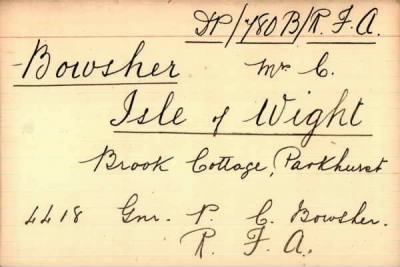 DP/780B/R.F.A.
Bowsher Mr C.
Isle of Wight
Brook Cottage, Parkhurst
4418 Gnr. P. C. Bowsher.
R. F. A.